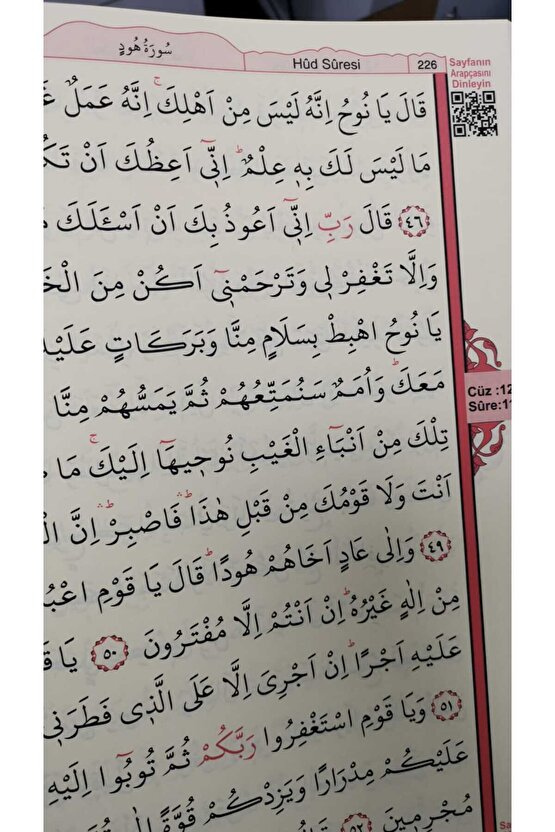 سُورَةُ هُودٍ
Hûd Sûresi
226
Sayfanın
Arapçasını
Dinleyin
قَالَ يَا نُوحُ اِنَّهُ لَيْسَ مِنْ اَهْلِكَۚ اِنَّهُ عَمَلٌ
مَا لَيْسَ لَكَ بِهٖ عِلْمٌۜ اِنّٖٓي اَعِظُكَ اَنْ
﴿٤٦﴾ قَالَ رَبِّ اِنّٖٓي اَعُوذُ بِكَ اَنْ اَسْـَٔلَكَ
وَاِلَّا تَغْفِرْ لٖي وَتَرْحَمْنٖٓي اَكُنْ مِنَ
يَا نُوحُ اهْبِطْ بِسَلَامٍ مِنَّا وَبَرَكَاتٍ
مَعَكَۜ وَاُمَمٌ سَنُمَتِّعُهُمْ ثُمَّ يَمَسُّهُمْ مِنَّا
تِلْكَ مِنْ اَنْبَٓاءِ الْغَيْبِ نُوحٖيهَٓا اِلَيْكَۚ مَا
اَنْتَ وَلَا قَوْمُكَ مِنْ قَبْلِ هٰذَاۜۛ فَاصْبِرْۜۛ اِنَّ
﴿٤٩﴾ وَاِلٰى عَادٍ اَخَاهُمْ هُودًاۜ قَالَ يَا قَوْمِ
مِنْ اِلٰهٍ غَيْرُهُۜ اِنْ اَنْتُمْ اِلَّا مُفْتَرُونَ ﴿٥٠﴾ يَا
عَلَيْهِ اَجْرًاۜ اِنْ اَجْرِيَ اِلَّا عَلَى الَّذٖي فَطَرَنٖي
﴿٥١﴾ وَيَا قَوْمِ اسْتَغْفِرُوا رَبَّكُمْ ثُمَّ تُوبُٓوا اِلَيْهِ
عَلَيْكُمْ مِدْرَارًا وَيَزِدْكُمْ قُوَّةً
مُجْرِمٖينَ ﴿٥٢﴾
Cüz :12
Sûre:11